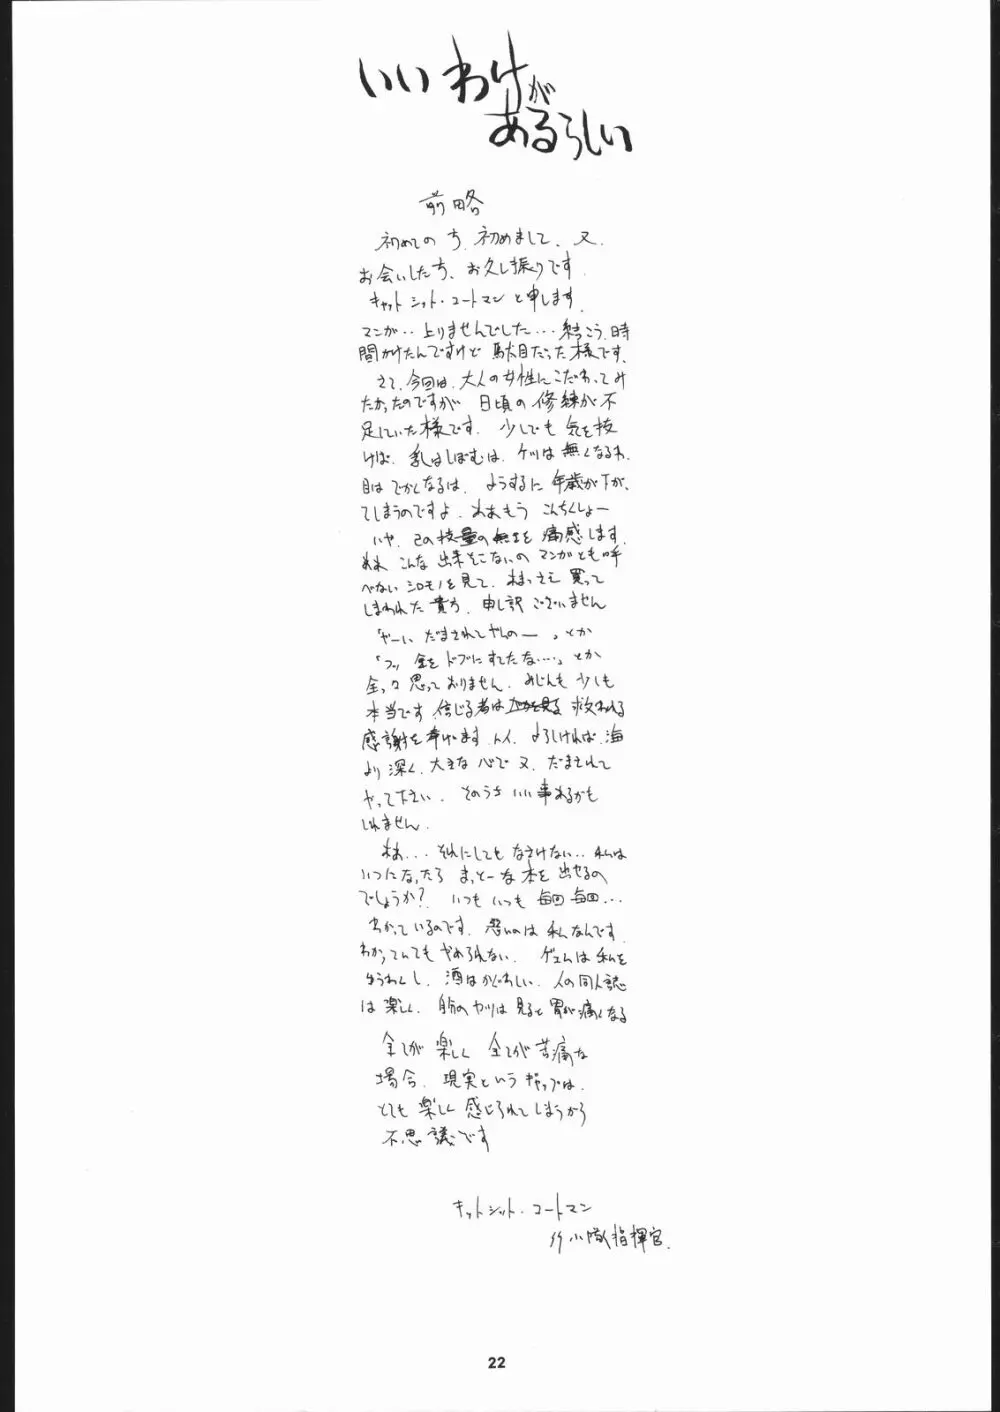 いいわけが
あるらしい
前略
初めての方、初めまして、又、
お会いした方、お久し振りです。
キャットシット・コートマンと申します。
マンガ‥上りませんでした…結こう、時
間かけたんですけど駄目だった様です。
さて、今回は、大人の女性にこだわってみ
たかったのですが 日頃の修練が不
足していた様です。少しでも気を抜
けば、乳はしぼむは、ケツは無くなるわ、
目はでかくなるは、ようするに年歳が下が、
てしまうのですよ。ああもう こんちくしょー
いや、己の技量の無さを痛感します。
ああ、こんな出来そこないのマンガとも呼
べないシロモノを見て、 買って
しまわれた貴方、申し訳ございません
「やーい、だまされてやんのー」とか
「フッ 金をドブにすてたな…」とか
全々思っておりません。みじんも少しも
本当です。信じる者は 救われる
感謝を 捧げます。 よろしければ、海
より深く、大きな心で又、だまされて
やって下さい。そのうち いい事あるかも
しれません。
ああ…それにしても なさけない‥私は
いつになったら まっとーな本を出せるの
でしょうか？ いつもいつも 毎回毎回…
わかっているのです。悪いのは私なんです。
わかっていてもやめられない。ゲームは私を
ゆうわくし、酒はかぐわしい、人の同人誌
は楽しく、自分のヤツは見ると胃が痛くなる
全てが楽しく 全てが苦痛な
場合、現実というギャップは、
とても楽しく感じられてしまうから
不思議です
キャットシット・コートマン
小隊指揮官
22